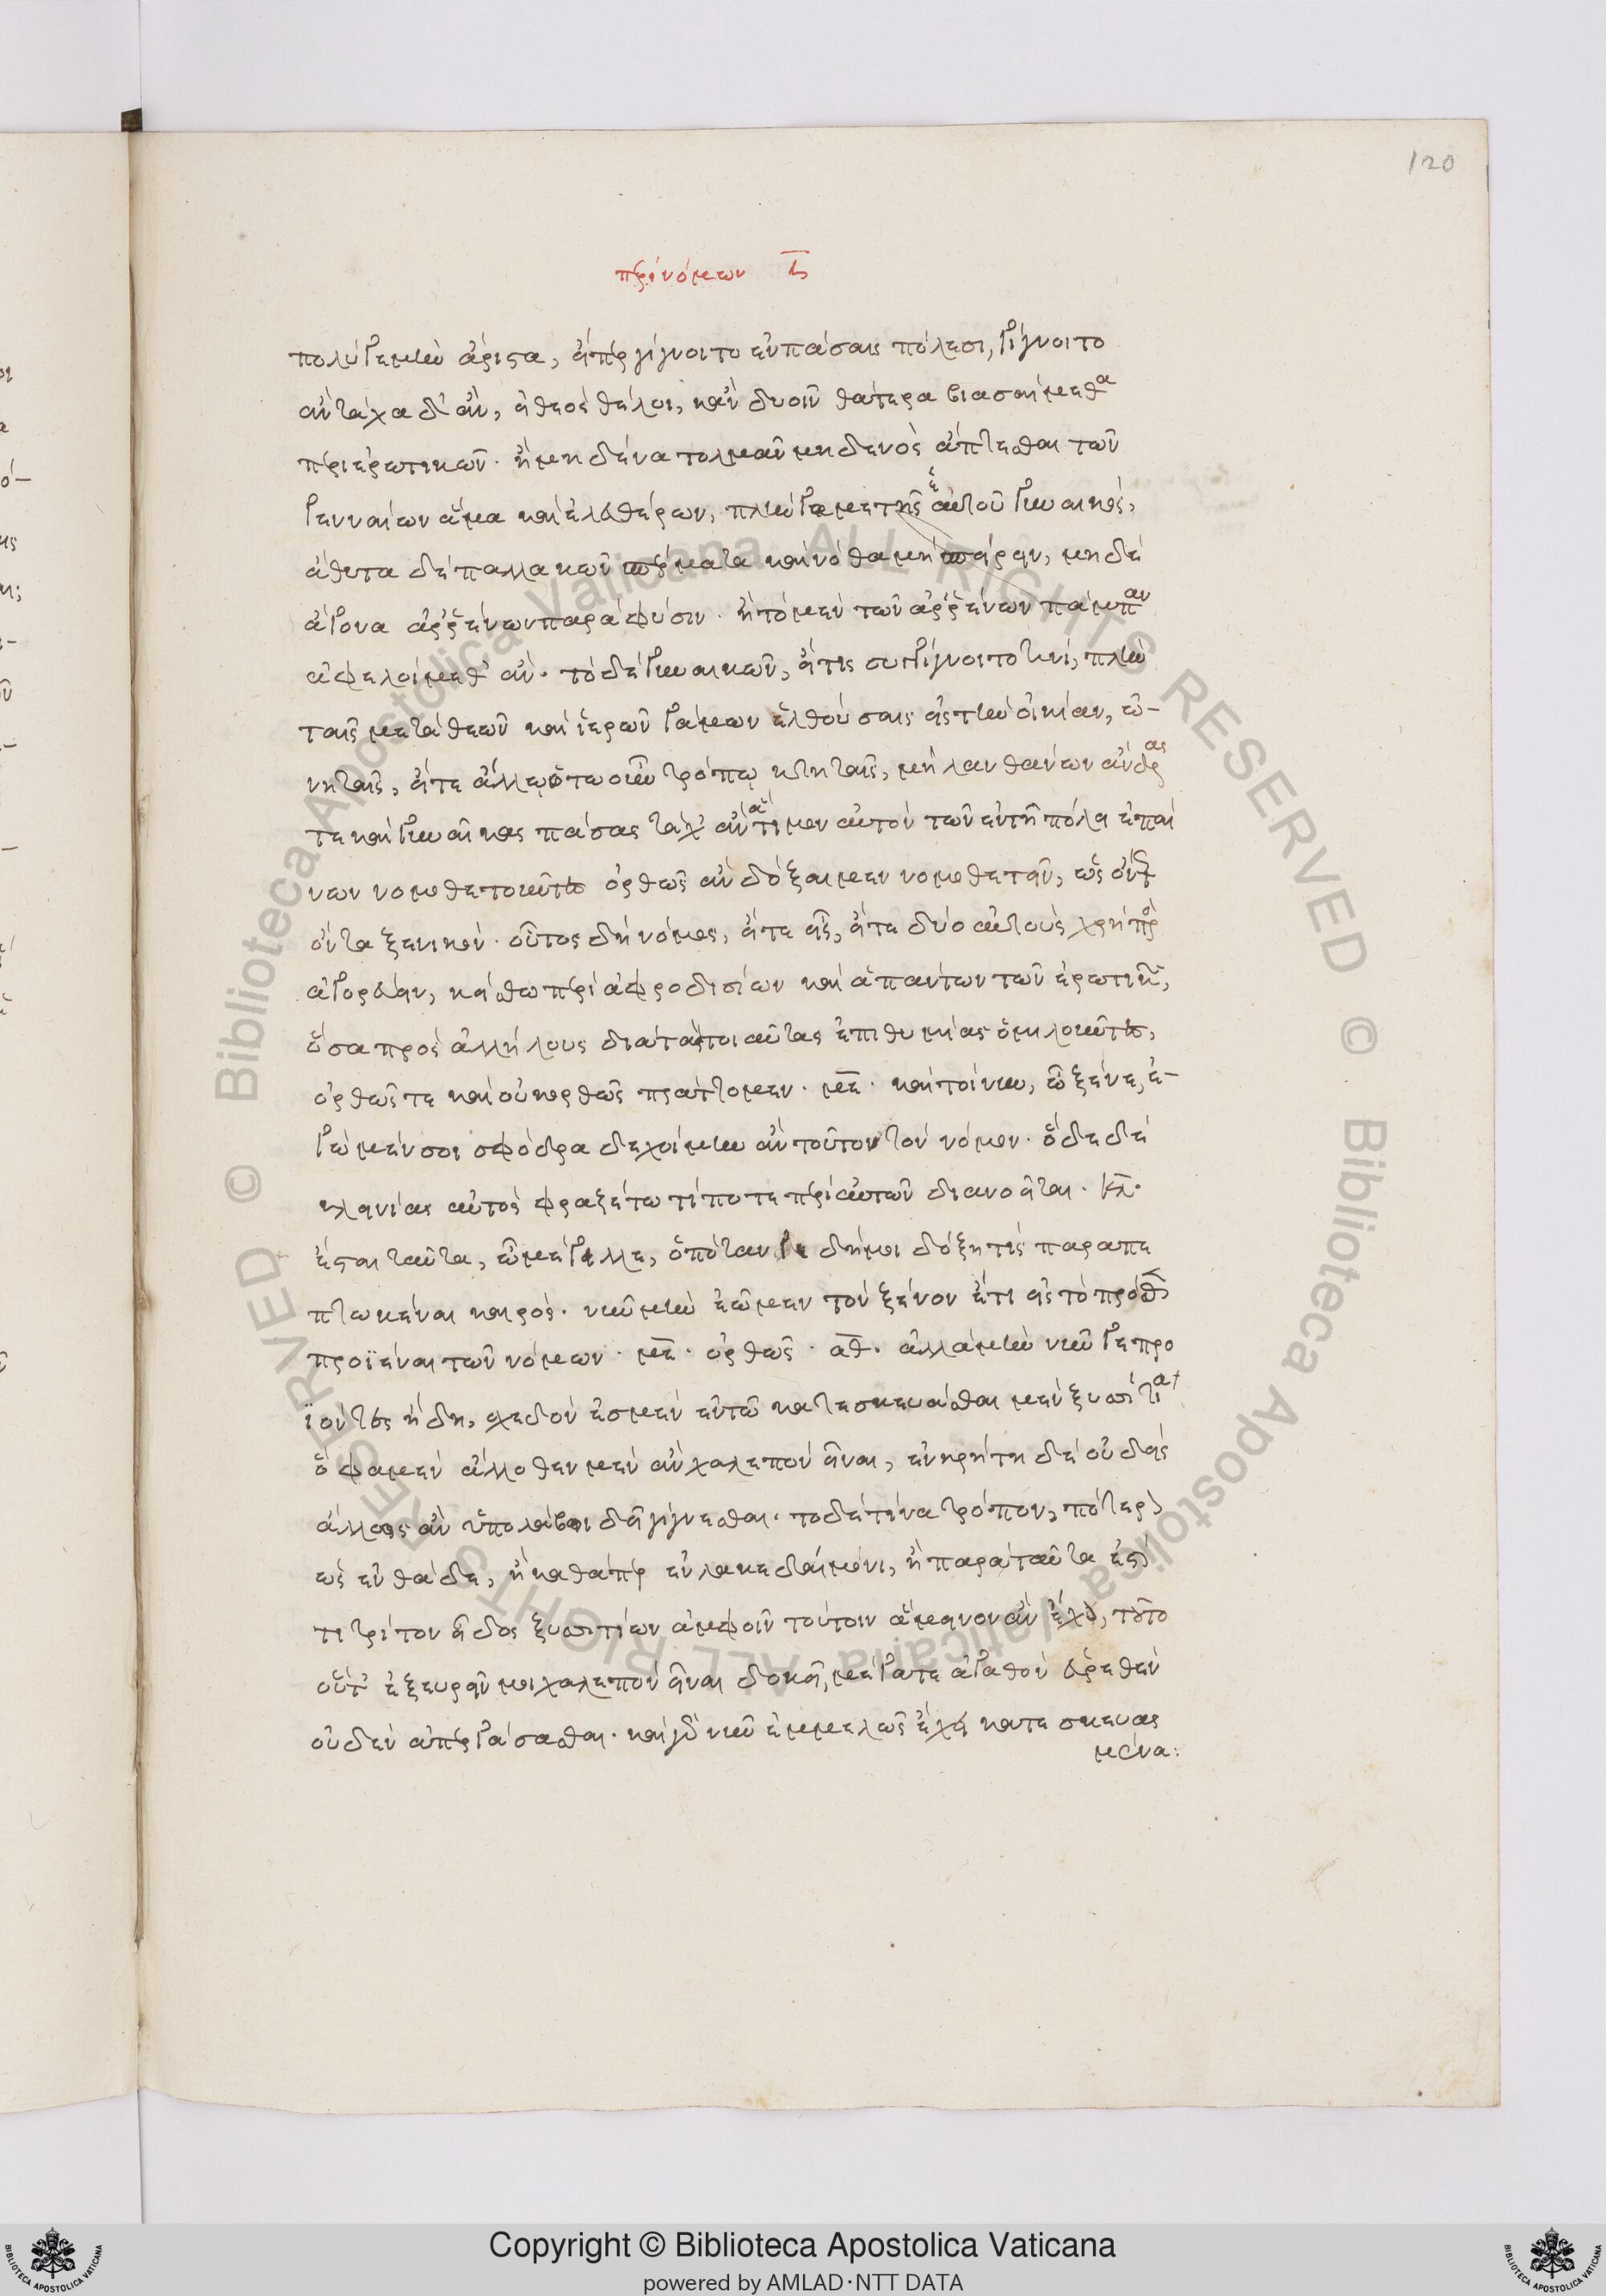 120
περὶ νόμων η
πολύ γε μὴν ἄριστα, εἴπερ γίγνοιτο ἐν πάσαις πόλεσι, γίγνοιτο
ἂν τάχα δ' ἂν, εἰ θεὸς θέλοι, κἂν δυοῖν θάτερα βιασαίμεθα
περὶ ἐρωτικῶν. ἢ μηδένα τολμᾶν μηδενὸς ἅπτεσθαι τῶν
γενναίων ἅμα καὶ ἐλευθέρων, πλὴν γαμετῆς ἑαυτοῦ γυναικὸς,
ἄθυτα δὲ παλλακῶν σπέρματα καὶ νόθα μὴ σπείρειν, μηδὲ
ἄγονα ἀρρένων παρὰ φύσιν. ἢ τὸ μὲν τῶν ἀρρένων πάμπαν
ἀφελοίμεθ' ἂν. τὸ δὲ γυναικῶν, εἴ τις συγγίγνοιτο τινὶ, πλὴν
ταῖς μετὰ θεῶν καὶ ἱερῶν γάμων ἐλθούσαις εἰς τὴν οἰκίαν, ὠ-
νηταῖς, εἴτε ἄλλῳ ὁτωοῦν τρόπῳ κτηταῖς, μὴ λανθάνων ἄνδρας
τε καὶ γυναῖκας πάσας τάχ' ἂν ἄτιμον αὐτὸν τῶν ἐν τῇ πόλει ἐπαί
νων νομοθετοῦντες ὀρθῶς ἂν δόξαιμεν νομοθετεῖν, ὡς ὄντως
ὄντα ξενικὸν. οὗτος δὴ νόμος, εἴτε εἷς, εἴτε δύο αὐτοὺς χρὴ προσ
αγορεύειν, κείσθω περὶ ἀφροδισίων καὶ ἁπάντων τῶν ἐρωτικῶν,
ὅσα πρὸς ἀλλήλους διὰ τὰς τοιαύτας ἐπιθυμίας ὁμιλοῦντες,
ὀρθῶς τε καὶ οὐκ ὀρθῶς πράττομεν. με. καὶ τοίνυν, ὦ ξένε, ἐ-
γὼ μέν σοι σφόδρα δεχοίμην ἂν τοῦτον τὸν νόμον. ὅδε δὲ
κλεινίας αὐτὸς φραζέτω τί ποτε περὶ αὐτῶν διανοεῖται. κλ.
ἔσται ταῦτα, ὦ μέγιλλε, ὁπόταν γε δή μοι δόξῃ τις παραπε
πτωκέναι καιρός. νῦν μὴν ἐῶμεν τὸν ξένον ἔτι εἰς τὸ πρόσθεν
προϊέναι τῶν νόμων. με. ὀρθῶς. αθ. ἀλλὰ μὴν νῦν γε προ
ϊόντες ἤδη, σχεδὸν ἐσμὲν ἐν τῷ κατεσκευάσθαι μὲν ξυσίτια
ὅ φαμεν ἄλλοθεν μὲν ἂν χαλεπὸν εἶναι, ἐν κρήτῃ δὲ οὐδεὶς
ἄλλως ἂν ὑπολάβοι δεῖν γίγνεσθαι. τὸ δὲ τίνα τρόπον, πότερον
ὡς ἐνθάδε, ἢ καθάπερ ἐν λακεδαίμονι, ἢ παρὰ ταῦτα ἔσ
τι τρίτον εἶδος ξυσιτίων ἀμφοῖν τούτοιν ἄμεινον ἂν ἔχον, τοῦτο
οὔτ' ἐξευρεῖν μοι χαλεπὸν εἶναι δοκεῖ, μέγα τε ἀγαθὸν εὑρεθὲν
οὐδὲν ἀπεργάσασθαι. καὶ γὰρ νῦν ἐμμελῶς ἔχειν κατεσκευασ
μένα:
Copyright © Biblioteca Apostolica Vaticana
powered by AMLAD·NTT DATA